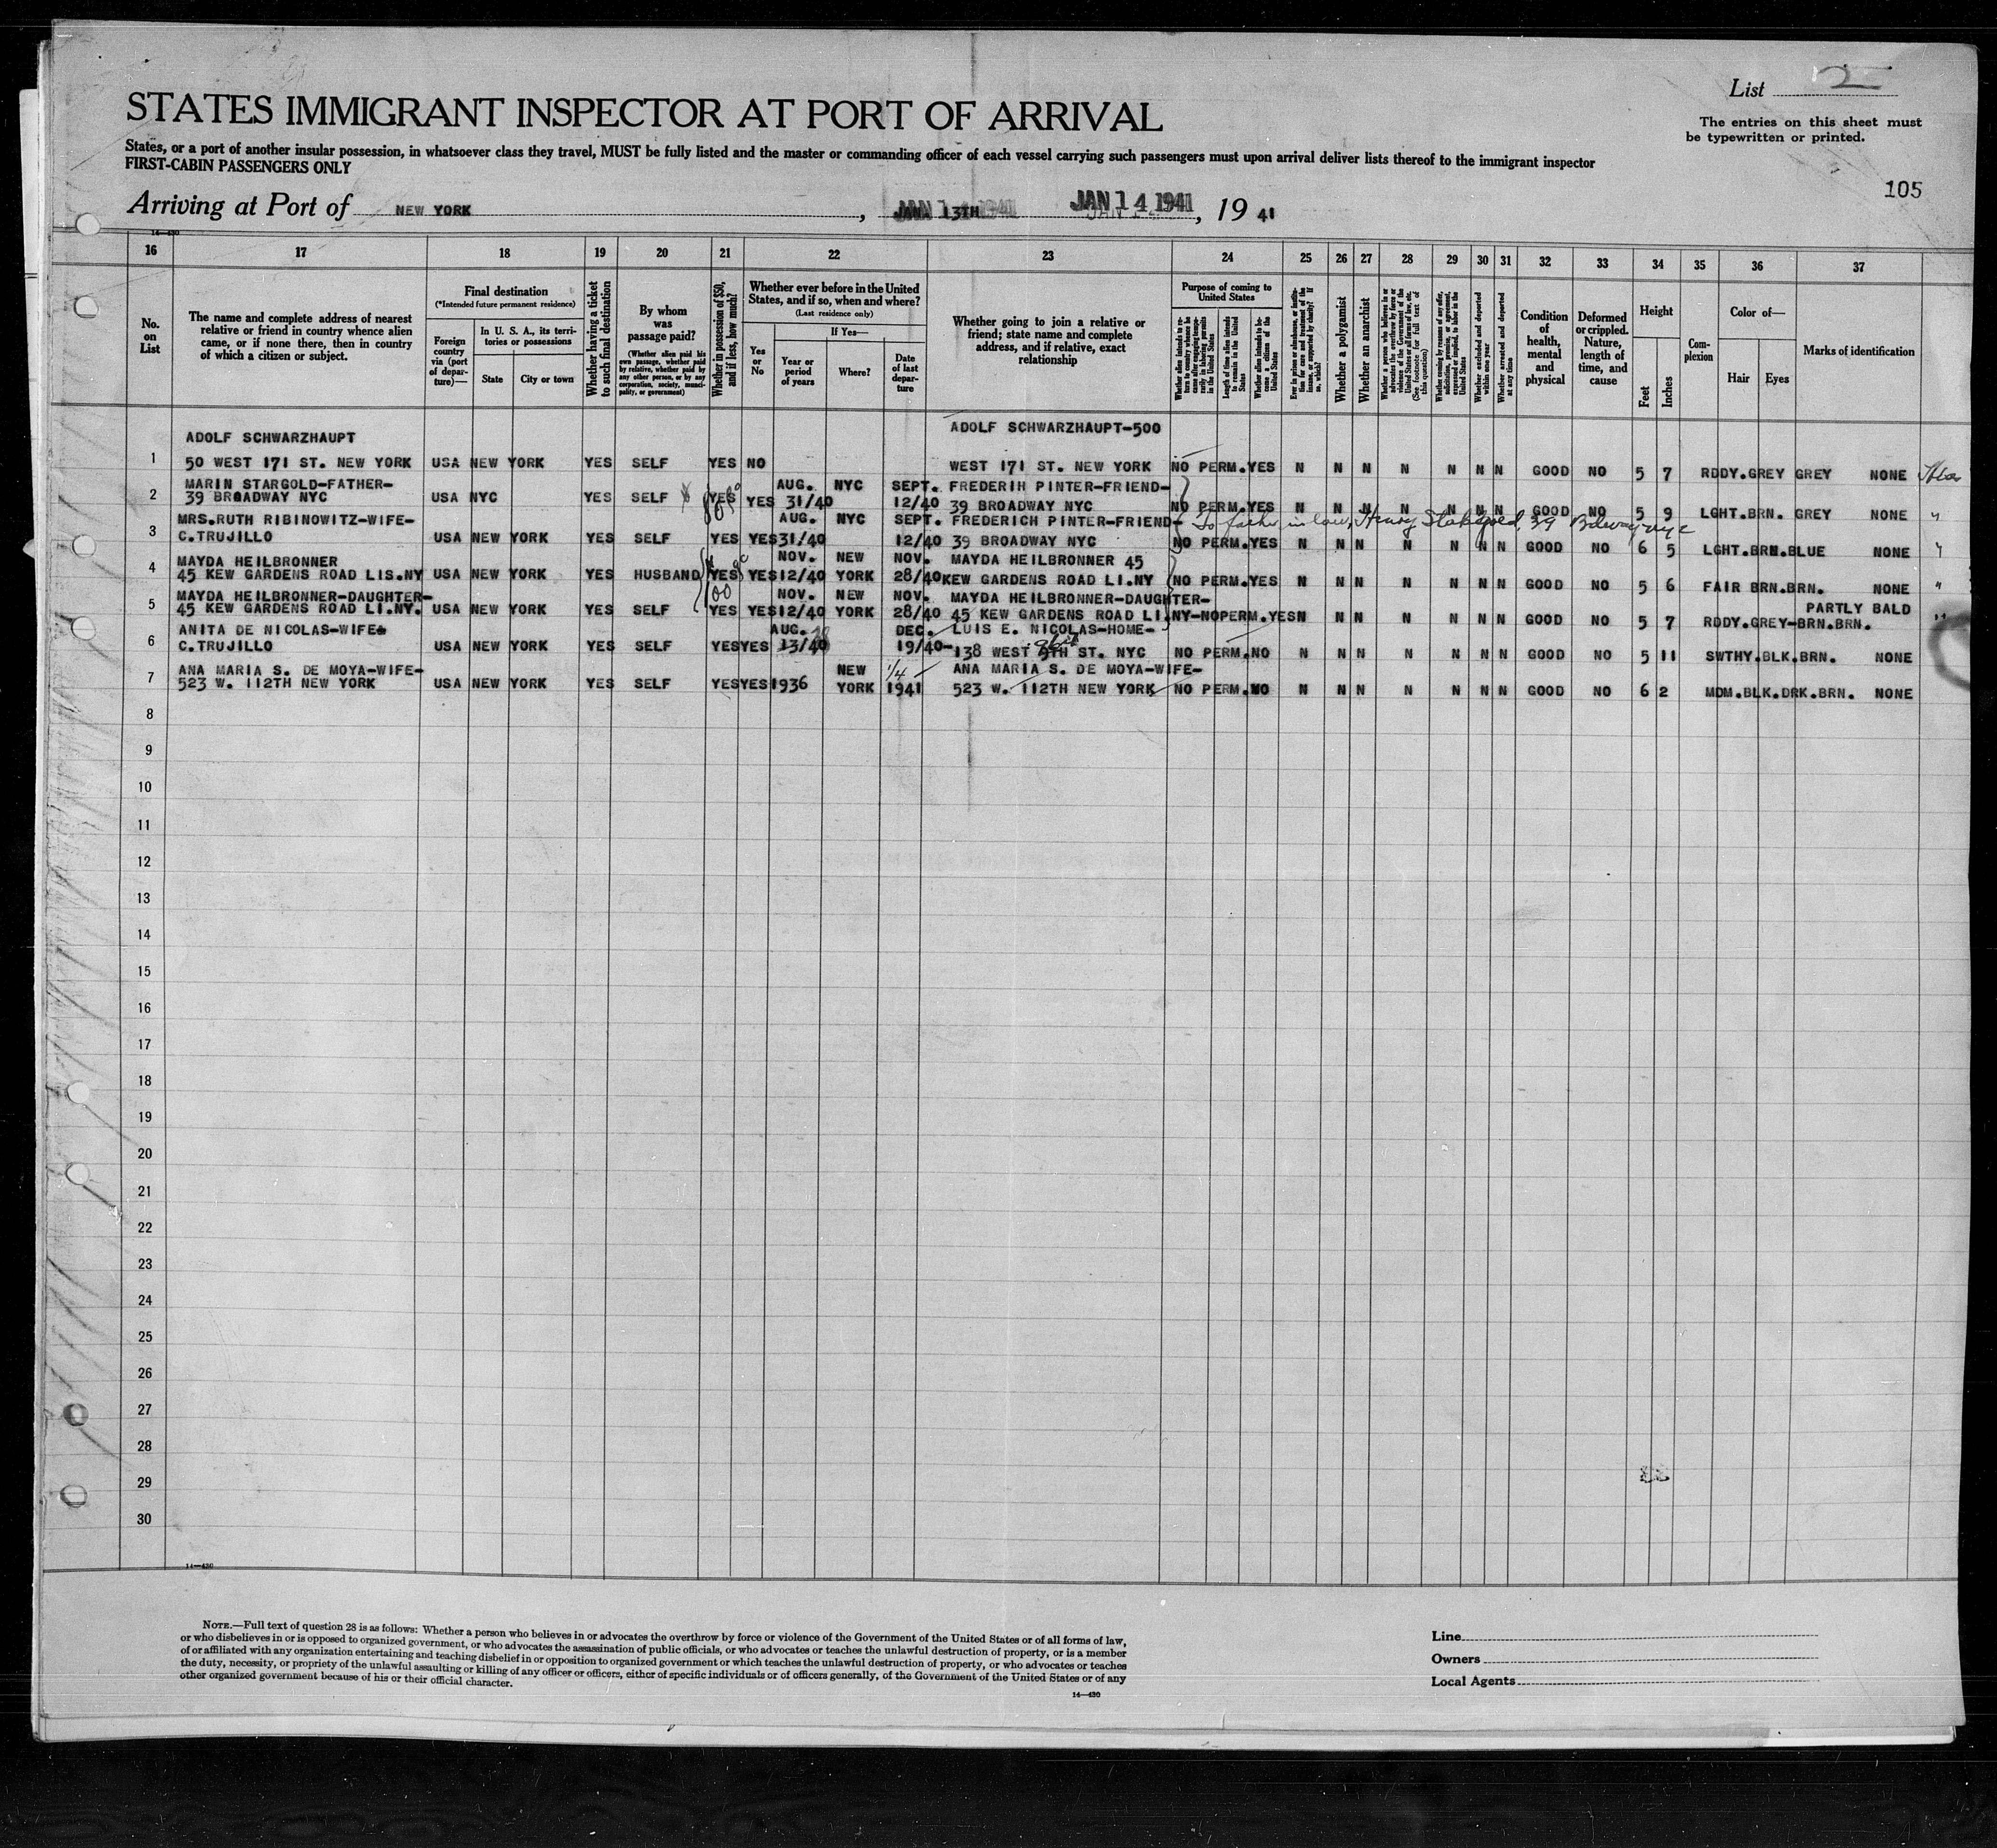 List 2
The entries on this sheet must
be typewritten or printed.
STATES IMMIGRANT INSPECTOR AT PORT OF ARRIVAL
States, or a port of another insular possession, in whatsoever class they travel, MUST be fully listed and the master or commanding officer of each vessel carrying such passengers must upon arrival deliver lists thereof to the immigrant inspector
FIRST-CABIN PASSENGERS ONLY
105
Arriving at Port of NEW YORK, JAN. 13TH JAN 14 1941, 19 41
14—430
16 17 18 19 20 21 22 23 24 25 26 27 28 29 30 31 32 33 34 35 36 37
No. on List
The name and complete address of nearest
relative or friend in country whence alien
came, or if none there, then in country
of which a citizen or subject.
Final destination
(*Intended future permanent residence)
Foreign country via (port of departure)—
In U. S. A., its territories or possessions
State
City or town
Whether having a ticket to such final destination
By whom was passage paid?
(Whether alien paid his own passage, whether paid by relative, whether paid by any other person, or by any corporation, society, municipality, or government)
Whether in possession of $50, and if less, how much?
Whether ever before in the United States, and if so, when and where?
(Last residence only)
Yes or No
If Yes—
Year or period of years
Where?
Date of last departure
Whether going to join a relative or
friend; state name and complete
address, and if relative, exact
relationship
Purpose of coming to United States
Whether alien intends to return to country whence he came after engaging temporarily in laboring pursuits in the United States
Length of time alien intends to remain in the United States
Whether alien intends to become a citizen of the United States
Ever in prison or almshouse, or institution for care and treatment of the insane, or supported by charity? If so, which?
Whether a polygamist
Whether an anarchist
Whether a person who believes in or advocates the overthrow by force or violence of the Government of the United States or all forms of law, etc. (See footnote for full text of this question)
Whether coming by reasons of any offer, solicitation, promise, or agreement, expressed or implied, to labor in the United States
Whether excluded and deported within one year
Whether arrested and deported at any time
Condition of health, mental and physical
Deformed or crippled. Nature, length of time, and cause
Height
Feet
Inches
Complexion
Color of—
Hair
Eyes
Marks of identification
ADOLF SCHWARZHAUPT ADOLF SCHWARZHAUPT-500
1 50 WEST 171 ST. NEW YORK USA NEW YORK YES SELF YES NO WEST 171 ST. NEW YORK NO PERM. YES N N N N N N N GOOD NO 5 7 RDDY. GREY GREY NONE
MARIN STARGOLD-FATHER- AUG. NYC SEPT. FREDERIH PINTER-FRIEND-
2 39 BROADWAY NYC USA NYC YES SELF YES YES 31/40 12/40 39 BROADWAY NYC NO PERM. YES N N N N N N N GOOD NO 5 9 LGHT. BRN. GREY NONE "
MRS. RUTH RIBINOWITZ-WIFE- AUG. NYC SEPT. FREDERICH PINTER-FRIEND- To father in law, Henry 39 Bdeway nyc
3 C. TRUJILLO USA NEW YORK YES SELF YES YES 31/40 12/40 39 BROADWAY NYC NO PERM. YES N N N N N N N GOOD NO 6 5 LGHT. BRN. BLUE NONE "
MAYDA HEILBRONNER NOV. NEW NOV. MAYDA HEILBRONNER 45
4 45 KEW GARDENS ROAD LIS. NY USA NEW YORK YES HUSBAND YES YES 12/40 YORK 28/40 KEW GARDENS ROAD LI. NY NO PERM. YES N N N N N N N GOOD NO 5 6 FAIR BRN. BRN. NONE "
100
MAYDA HEILBRONNER-DAUGHTER- NOV. NEW NOV. MAYDA HEILBRONNER-DAUGHTER- PARTLY BALD
5 45 KEW GARDENS ROAD LI. NY. USA NEW YORK YES SELF YES YES 12/40 YORK 28/40 45 KEW GARDENS ROAD LI. NY-NO PERM. YES N N N N N N N GOOD NO 5 7 RDDY. GREY-BRN. BRN. "
ANITA DE NICOLAS-WIFE- AUG. DEC. LUIS E. NICOLAS-HOME-
6 C. TRUJILLO USA NEW YORK YES SELF YES YES 13/40 19/40- 138 WEST ST. NYC NO PERM. NO N N N N N N N GOOD NO 5 11 SWTHY. BLK. BRN. NONE
ANA MARIA S. DE MOYA-WIFE- NEW 1/4 ANA MARIA S. DE MOYA-WIFE-
7 523 W. 112TH NEW YORK USA NEW YORK YES SELF YES YES 1936 YORK 1941 523 W. 112TH NEW YORK NO PERM. NO N N N N N N N GOOD NO 6 2 MDM. BLK. DRK. BRN. NONE
8
9
10
11
12
13
14
15
16
17
18
19
20
21
22
23
24
25
26
27
28
29
30
14—430
NOTE.—Full text of question 28 is as follows: Whether a person who believes in or advocates the overthrow by force or violence of the Government of the United States or of all forms of law,
or who disbelieves in or is opposed to organized government, or who advocates the assassination of public officials, or who advocates or teaches the unlawful destruction of property, or is a member
of or affiliated with any organization entertaining and teaching disbelief in or opposition to organized government or which teaches the unlawful destruction of property, or who advocates or teaches
the duty, necessity, or propriety of the unlawful assaulting or killing of any officer or officers, either of specific individuals or of officers generally, of the Government of the United States or of any
other organized government because of his or their official character.
14—430
Line
Owners
Local Agents